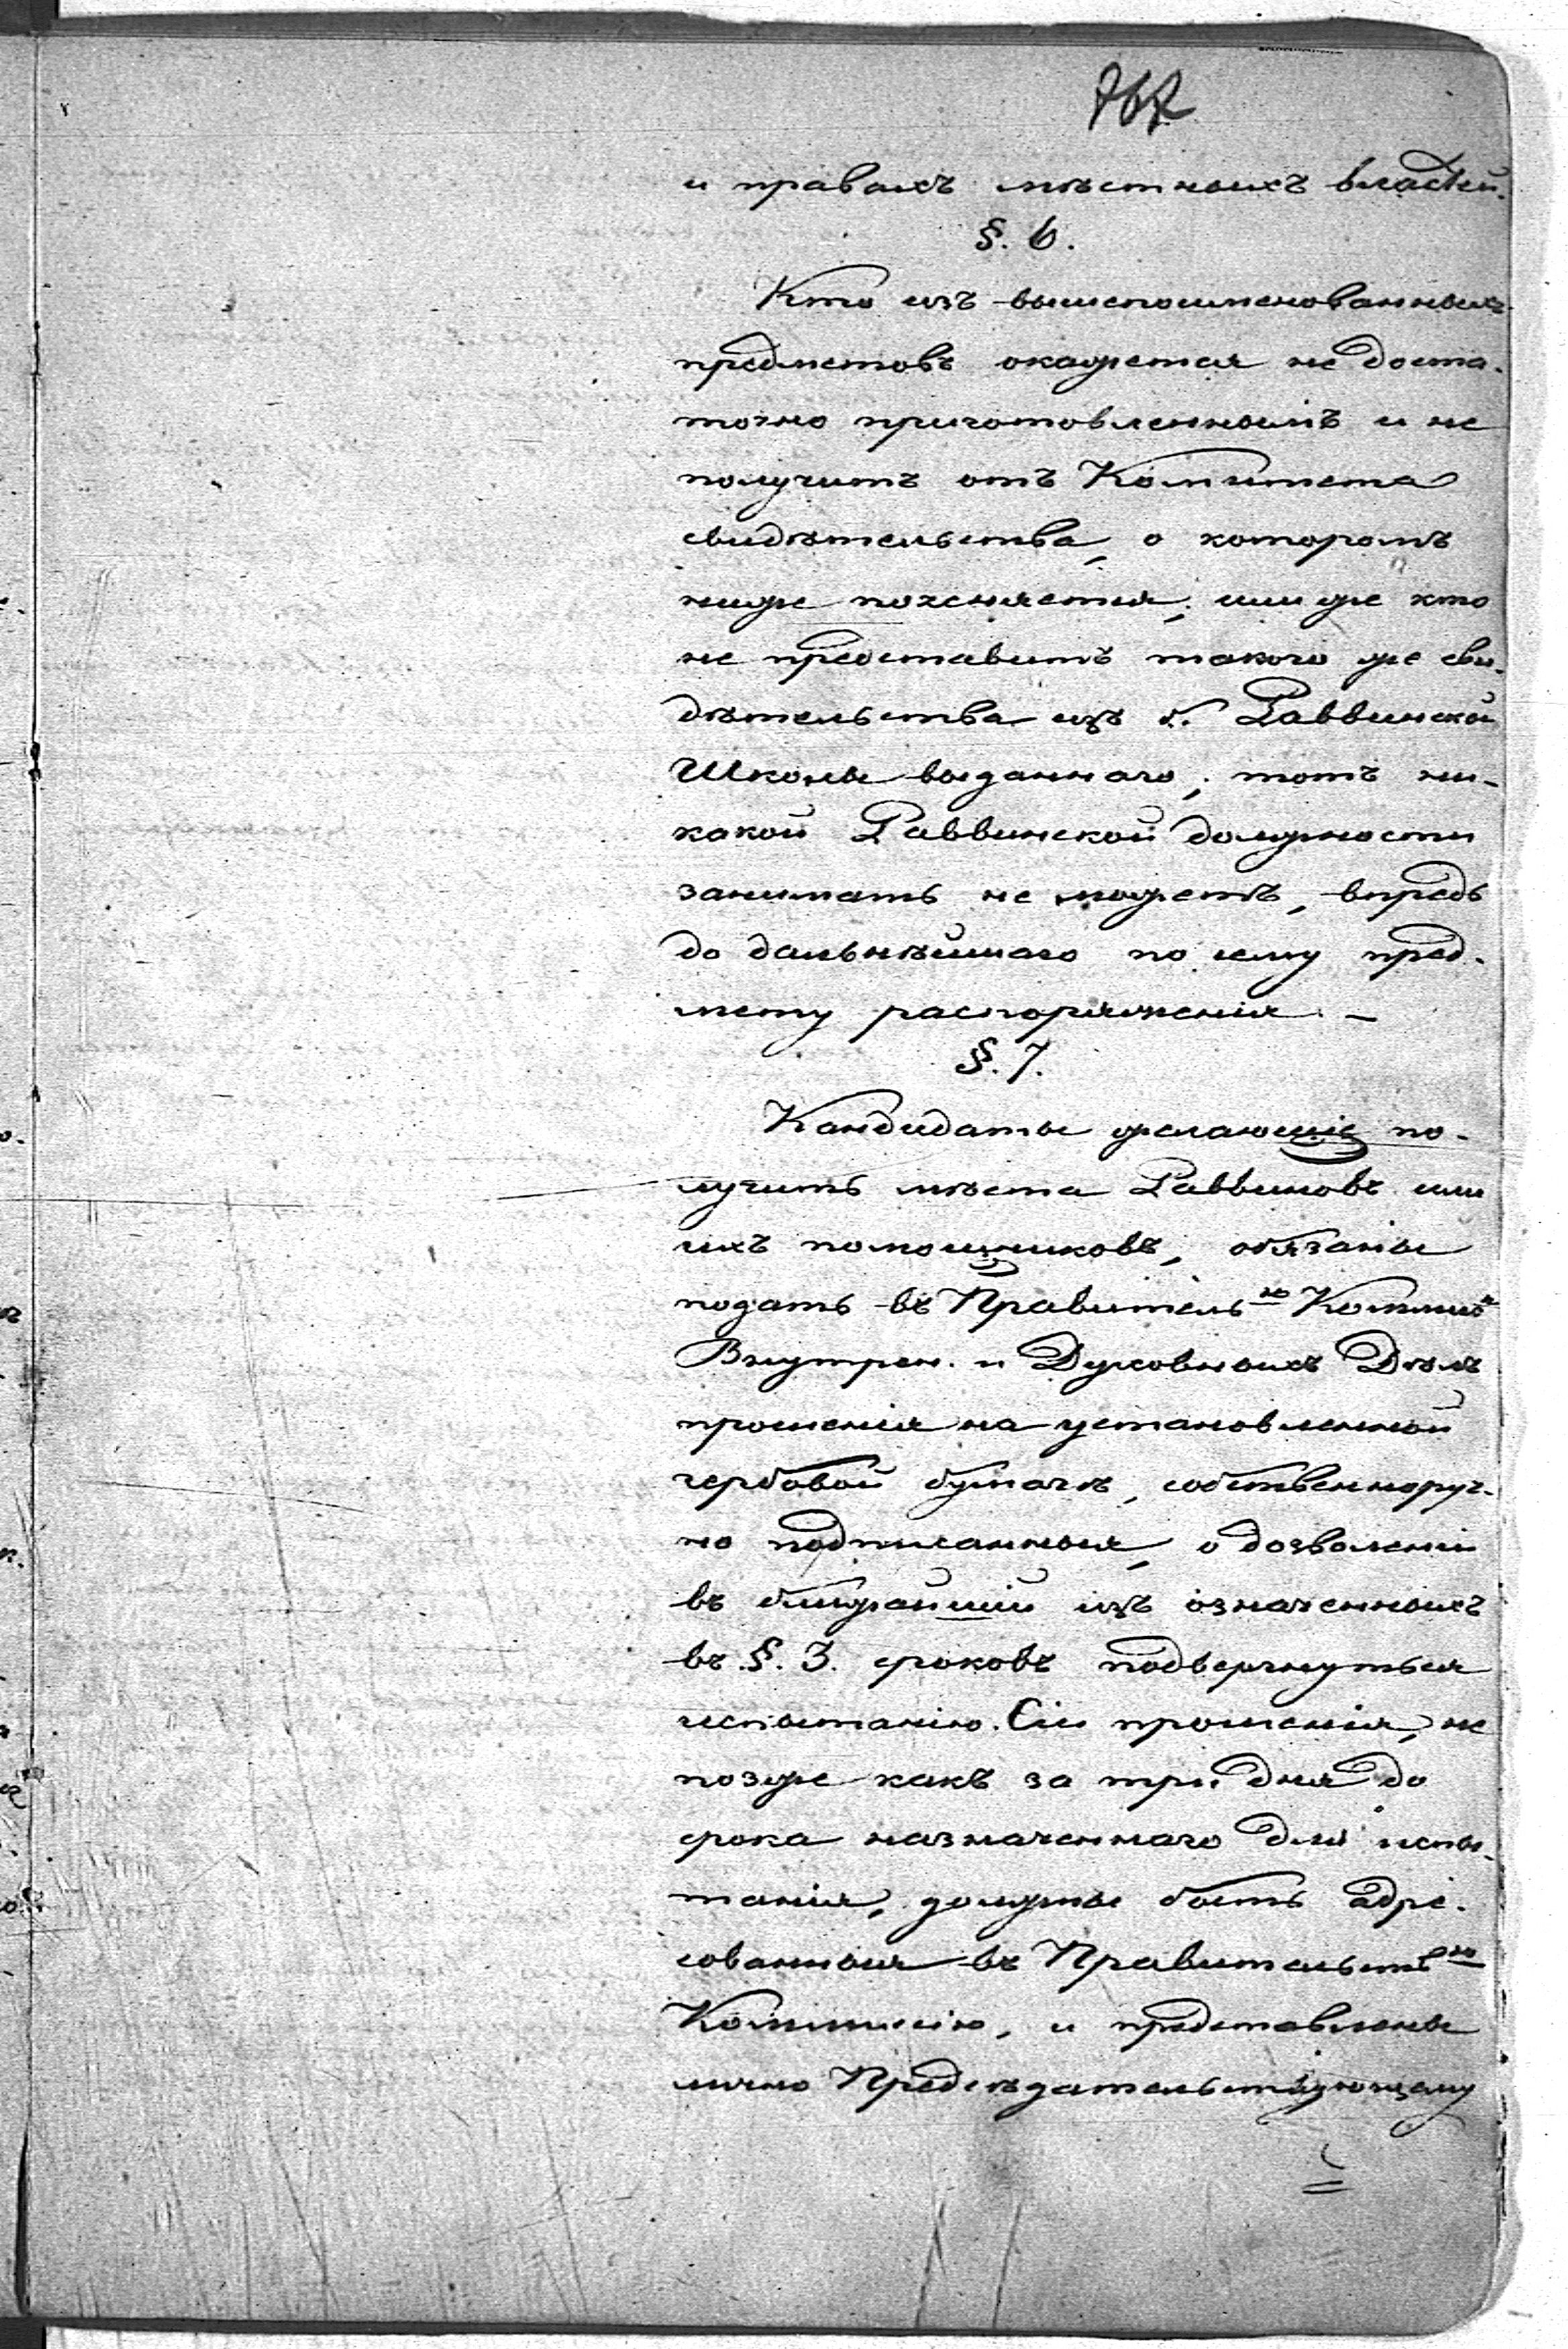 767
и правахъ мѣстныхъ властей.
§. 6.
Кто изъ вышепоименованныхъ
предметовъ окажется не доста-
точно приготовленнымъ и не
получитъ отъ Комитета
свидѣтельства, о которомъ
ниже поясняется, или же кто
не представитъ такого же сви-
дѣтельства изъ б. Раввинской
Школы выданнаго, тотъ ни-
какой Раввинской должности
занимать не можетъ, впредь
до дальнѣйшаго по сему пред-
мету распоряженія. –
§. 7.
Кандидаты желающіе по-
лучить мѣста Раввиновъ или
ихъ помощниковъ, обязаны
подать въ Правитель<sup>ю</sup> Коммис<sup>ю</sup>
Внутрен. и Духовныхъ Дѣлъ
прошенія на установленной
гербовой бумагѣ, собственноруч-
но подписанныя, о дозволеніи
въ ближайшій изъ означенныхъ
въ §. 3. сроковъ подвергнуться
испытанію. Сіи прошенія, не
позже какъ за три дня до
срока назначеннаго для испы-
танія, должны быть адре-
сованныя въ Правительств<sup>ю</sup>
Коммисію, и представлены
лично Предсѣдательствующему